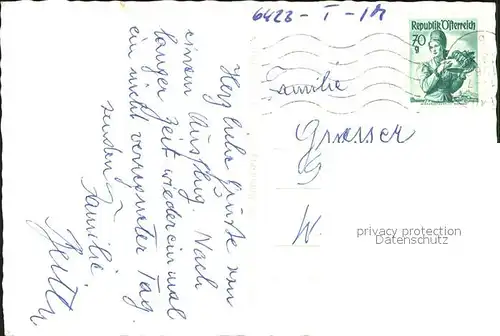 6423 - I - 1A
Republik Österreich
70
g
Herzliche Grüße von
einem Ausflug. Nach
langer Zeit wieder einmal
ein nicht verregneter Tag.
senden
Familie
Familie
Grasser
W.
privacy protection
Datenschutz